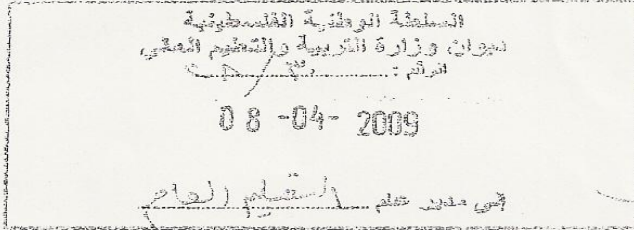 السلطة الوطنية الفلسطينية
ديوان وزارة التربية والتعليم العالي
الرقم :
08 -04- 2009
إلى مدير عام التعليم العام